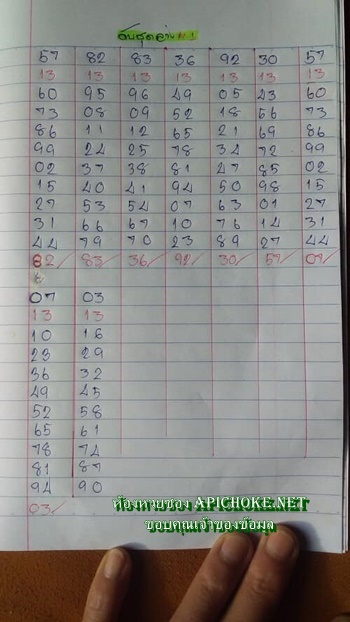 57 82 83 36 92 30 57
13 13 13 13 13 13 13
60 95 96 49 05 43 60
73 08 09 52 18 66 73
86 11 12 65 21 69 86
99 24 25 78 34 72 99
02 37 38 81 47 85 02
15 40 41 94 50 98 15
27 53 54 07 63 01 27
31 66 67 10 76 14 31
44 79 70 23 89 27 44
82/ 83/ 36/ 92/ 30/ 57/ 07/
07 03
13 13
10 16
23 29
36 32
49 45
52 58
65 61
78 74
81 87
94 90
03/
ห้องหายซอง APICHOKE.NET
ขอบคุณเจ้าของข้อมูล